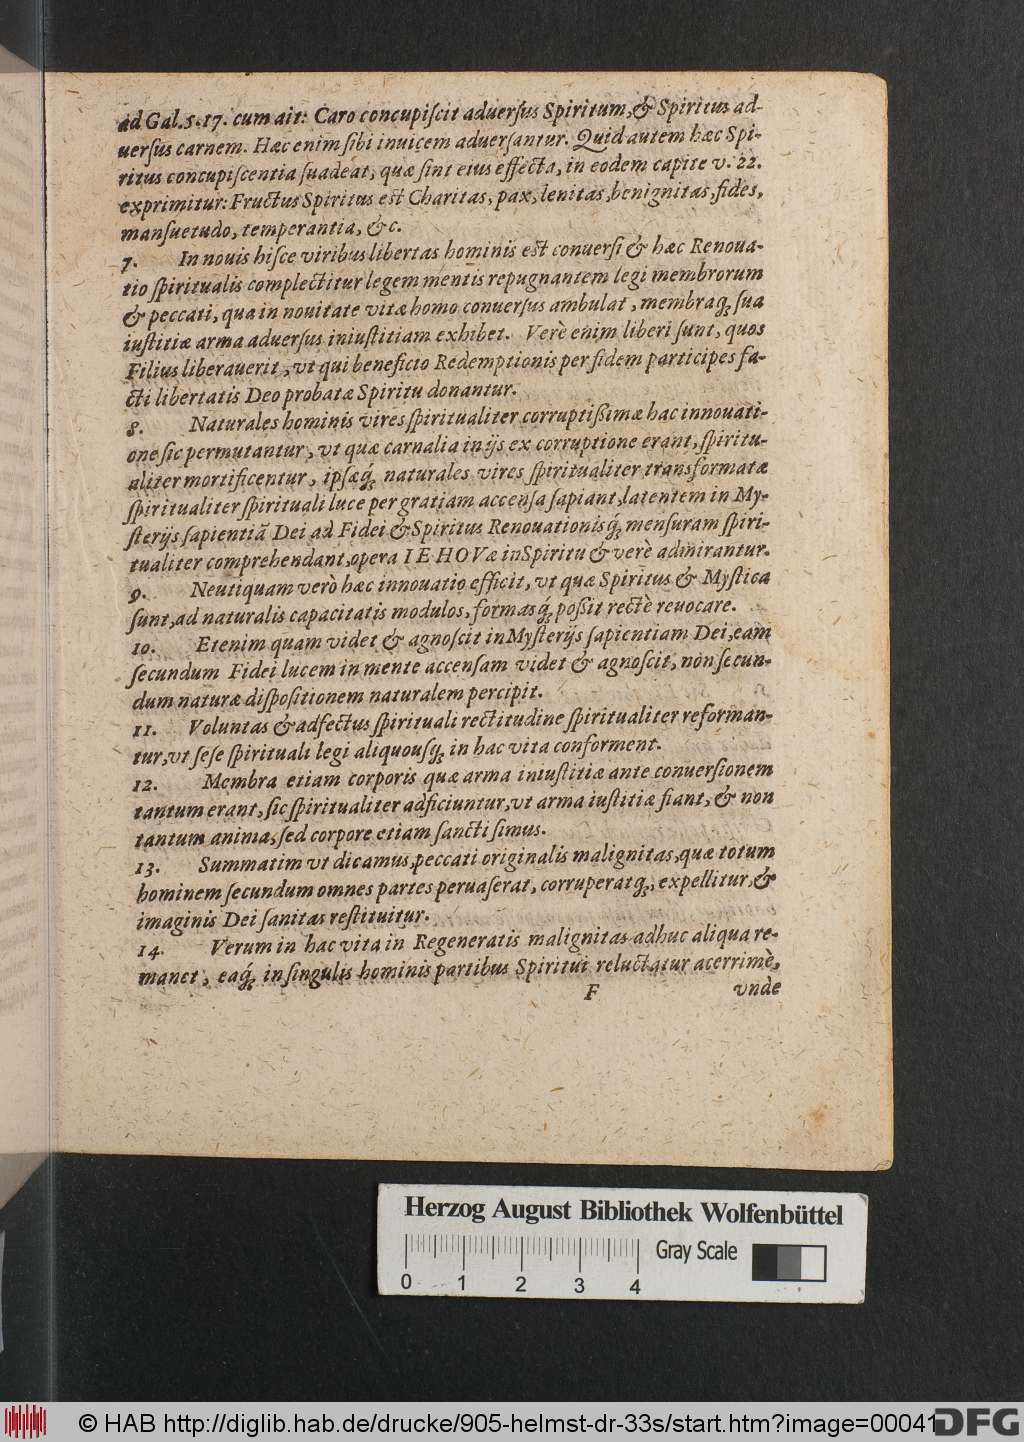 ad Gal. 5. 17. cum ait: Caro concupiſcit aduerſus Spiritum, & Spiritus ad-
uerſus carnem. Hæc enim ſibi inuicem aduerſantur. Quid autem hæc Spi-
ritus concupiſcentia ſuadeat, quæ ſint eius effecta, in eodem capite v. 22.
exprimitur: Fructus Spiritus est Charitas, pax, lenitas, benignitas, fides,
manſuetudo, temperantia, &c.
7. In nouis hiſce viribus libertas hominis est conuerſi & hæc Renoua-
tio ſpiritualis complectitur legem mentis repugnantem legi membrorum
& peccati, qua in nouitate vitæ homo conuerſus ambulat, membraq́ꝫ ſua
iuſtitiæ arma aduerſus iniuſtitiam exhibet. Verè enim liberi ſunt, quos
Filius liberauerit, vt qui beneficio Redemptionis per fidem participes fa-
cti libertatis Deo probatæ Spiritu donantur.
8. Naturales hominis vires ſpiritualiter corruptißimæ hac innouati-
one ſic permutantur, vt quæ carnalia in ijs ex corruptione erant, ſpiritu-
aliter mortificentur, ipſæq́ꝫ naturales vires ſpiritualiter transformatæ
ſpiritualiter ſpirituali luce per gratiam accenſa ſapiant, latentem in My-
ſterijs ſapientiã Dei ad Fidei & Spiritus Renouationisq́ꝫ menſuram ſpiri-
tualiter comprehendant, opera IEHOVæ in Spiritu & verè admirantur.
9. Neutiquam verò hæc innouatio efficit, vt quæ Spiritus & Myſtica
ſunt, ad naturalis capacitatis modulos, formasq́ꝫ poſsit rectè reuocare.
10. Etenim quam videt & agnoſcit in Myſterijs ſapientiam Dei, eam
ſecundum Fidei lucem in mente accenſam videt & agnoſcit, non ſecun-
dum naturæ diſpoſitionem naturalem percipit.
11. Voluntas & adfectus ſpirituali rectitudine ſpiritualiter reforman-
tur, vt ſeſe ſpirituali legi aliquouſq́ꝫ in hac vita conforment.
12. Membra etiam corporis quæ arma iniuſtitiæ ante conuerſionem
tantum erant, ſic ſpiritualiter adficiuntur, vt arma iuſtitiæ fiant, & non
tantum anima, ſed corpore etiam ſancti ſimus.
13. Summatim vt dicamus, peccati originalis malignitas, quæ totum
hominem ſecundum omnes partes peruaſerat, corruperatqꝫ, expellitur, &
imaginis Dei ſanitas reſtituitur.
14. Verum in hac vita in Regeneratis malignitas adhuc aliqua re-
manet, eaq́ꝫ in ſingulis hominis partibus Spiritui reluctatur acerrimè,
F vnde
Herzog August Bibliothek Wolfenbüttel
Gray Scale
0 1 2 3 4
© HAB http://diglib.hab.de/drucke/905-helmst-dr-33s/start.htm?image=00041
DFG